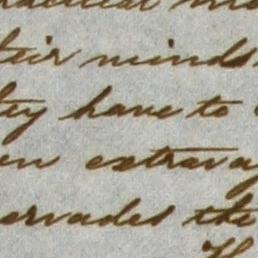 their minds
they have to
en extrava
ervades the